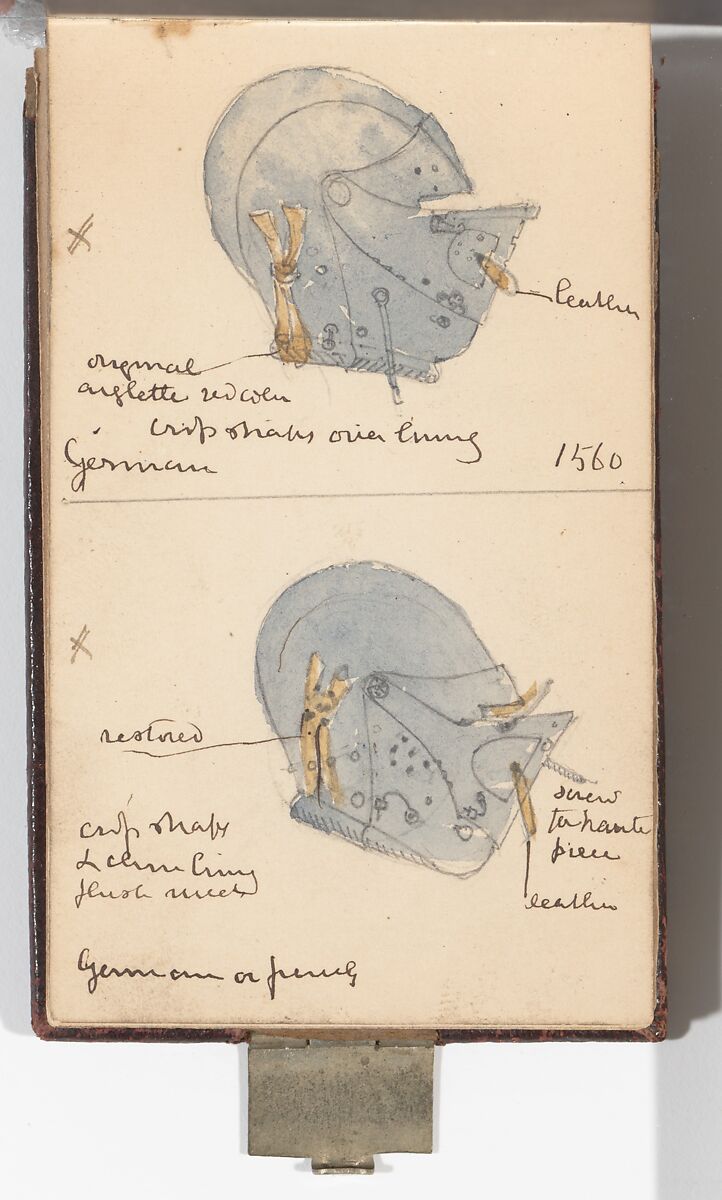 leather
original
aiglette red color
crop straps over lining
German
1560
restored
crop straps
& chin lining
flush rivets
screw
to haute
piece
leather
German or french